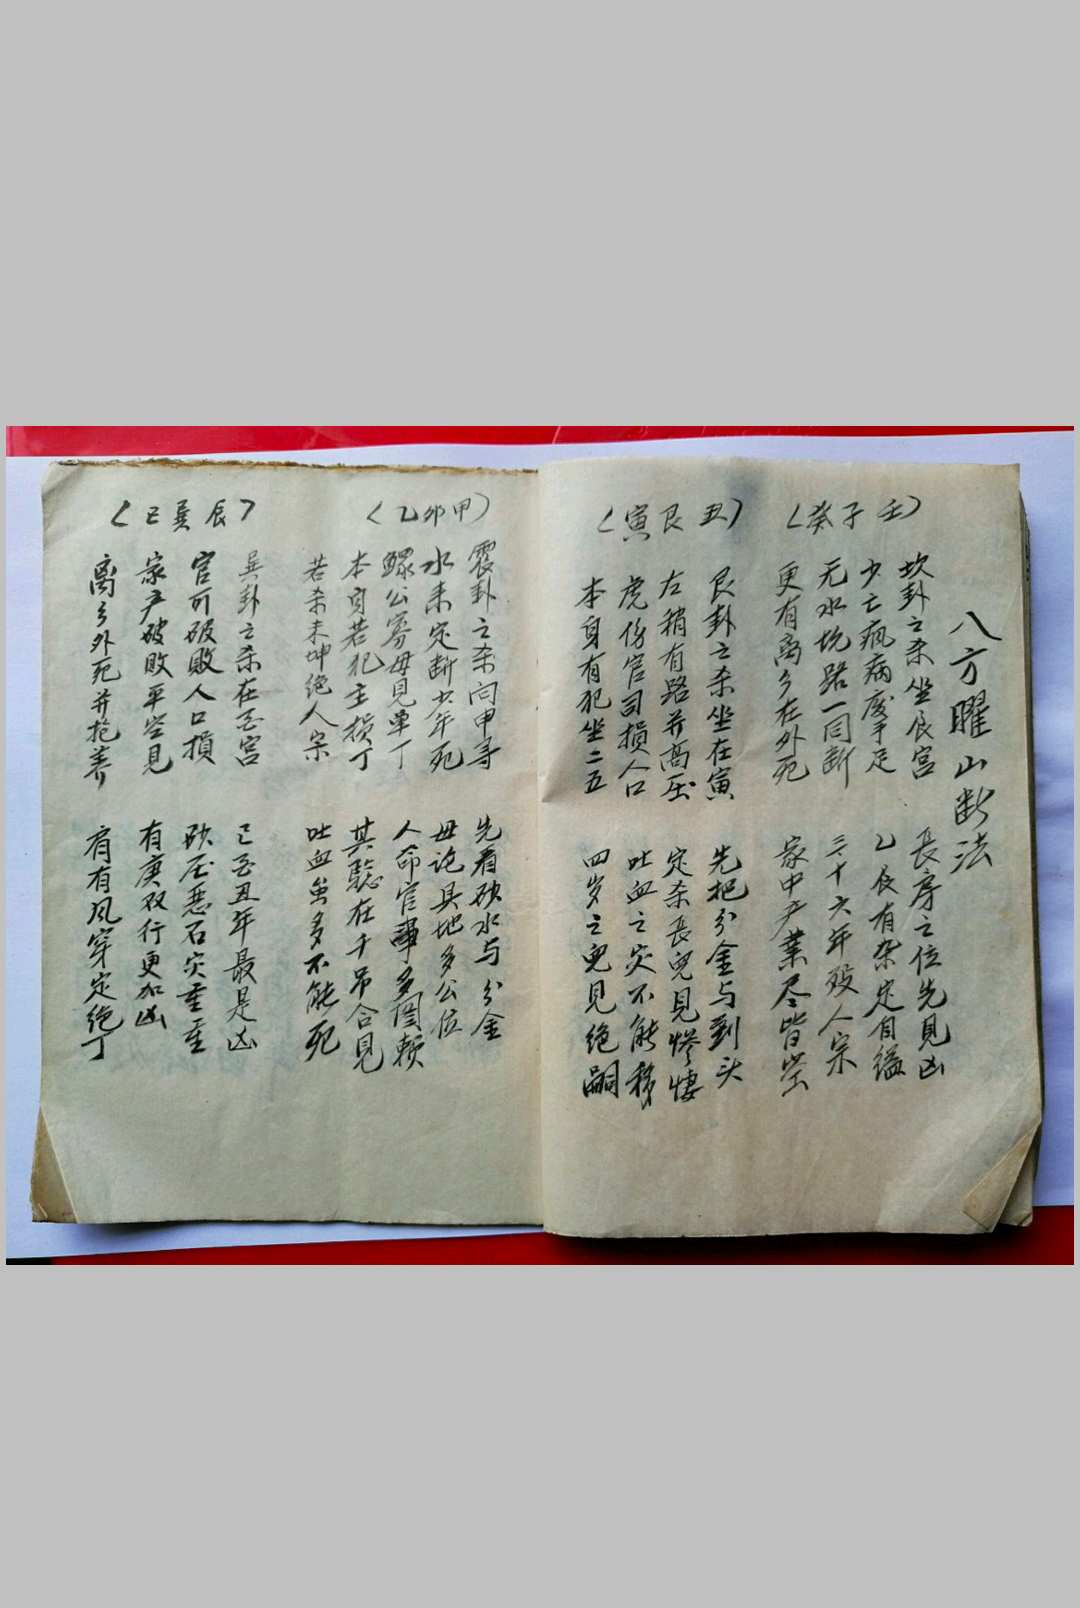 八方曜山断法
（癸子壬）
坎卦之杀坐辰宫 長房之位先見凶
少亡疯病废手足 乙辰有杂定自缢
无水坑路一同断 三十六年殁人宗
更有离乡在外死 家中产業尽皆空
（寅艮丑）
艮卦之杀坐在寅 先把分金与到头
左稍有路并高压 定杀長兒見惨悽
虎傷官司損人口 吐血之灾不能移
本身有犯坐二五 四岁之兒見绝嗣
（乙卯甲）
震卦之杀向申寻 先看砍水与分金
水来定断少年死 毋論其地多公位
鳏公寡母見单丁 人命官事多图赖
本身若犯主损丁 其驗在于吊合見
若杀未坤绝人宗 吐血虫多不能死
（巳巽辰）
巽卦之杀在酉宫 己酉丑年最是凶
官司破敗人口損 砍压恶石灾重重
家产破敗平空見 有庚双行更加凶
离乡外死并抱养 肩有风穿定绝丁